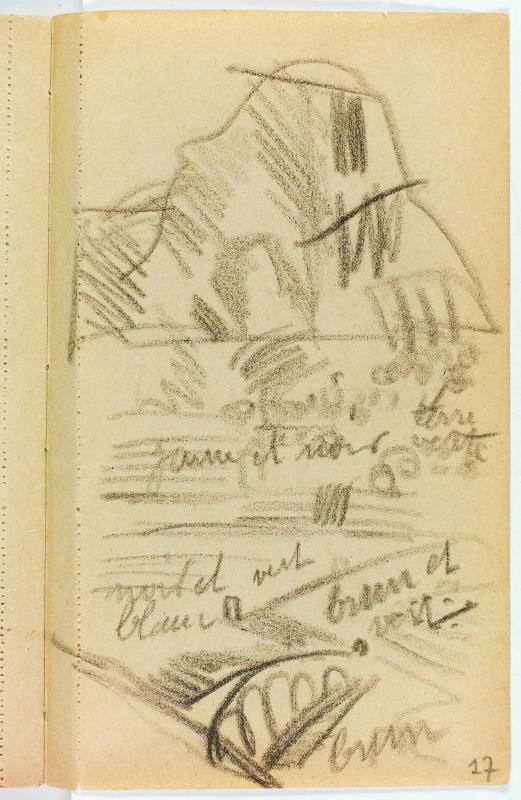 terre
jaune et noir verte
vert
noir et
blanc
brun et
vert
brun
17